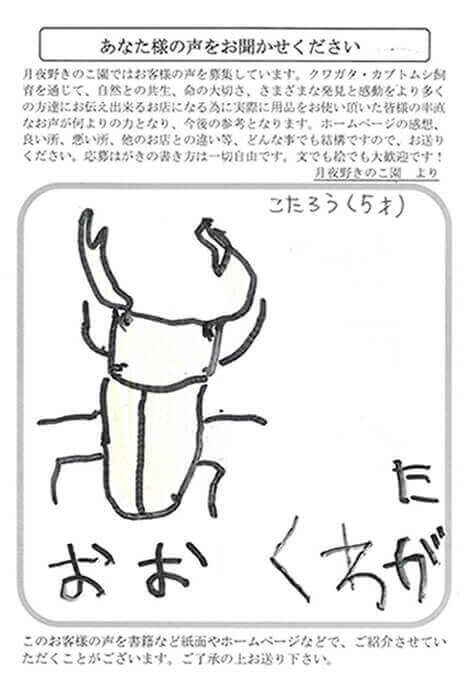 あなた様の声をお聞かせください
月夜野きのこ園ではお客様の声を募集しています。クワガタ・カブトムシ飼
育を通じて、自然との共生、命の大切さ、さまざまな発見と感動をより多く
の方達にお伝え出来るお店になる為に実際に用品をお使い頂いた皆様の率直
なお声が何よりの力となり、今後の参考となります。ホームページの感想、
良い所、悪い所、他のお店との違い等、どんな事でも結構ですので、お送り
ください。応募はがきの書き方は一切自由です。文でも絵でも大歓迎です！
月夜野きのこ園　より
こたろう(5才)
おおくわが
た
このお客様の声を書籍など紙面やホームページなどで、ご紹介させてい
ただくことがございます。ご了承の上お送り下さい。